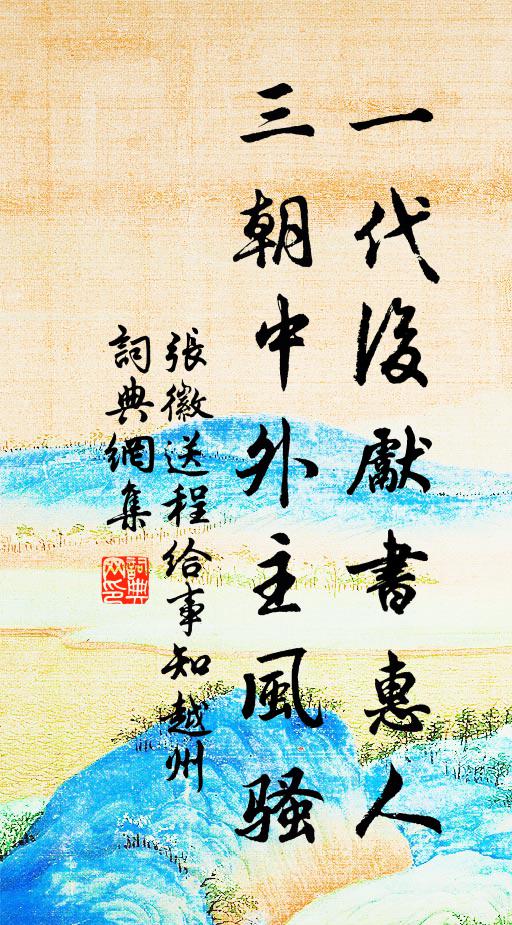 一代後獻書惠人
三朝中外主風騷
張徽送程給事知越州
詞典網集
詞典
网印